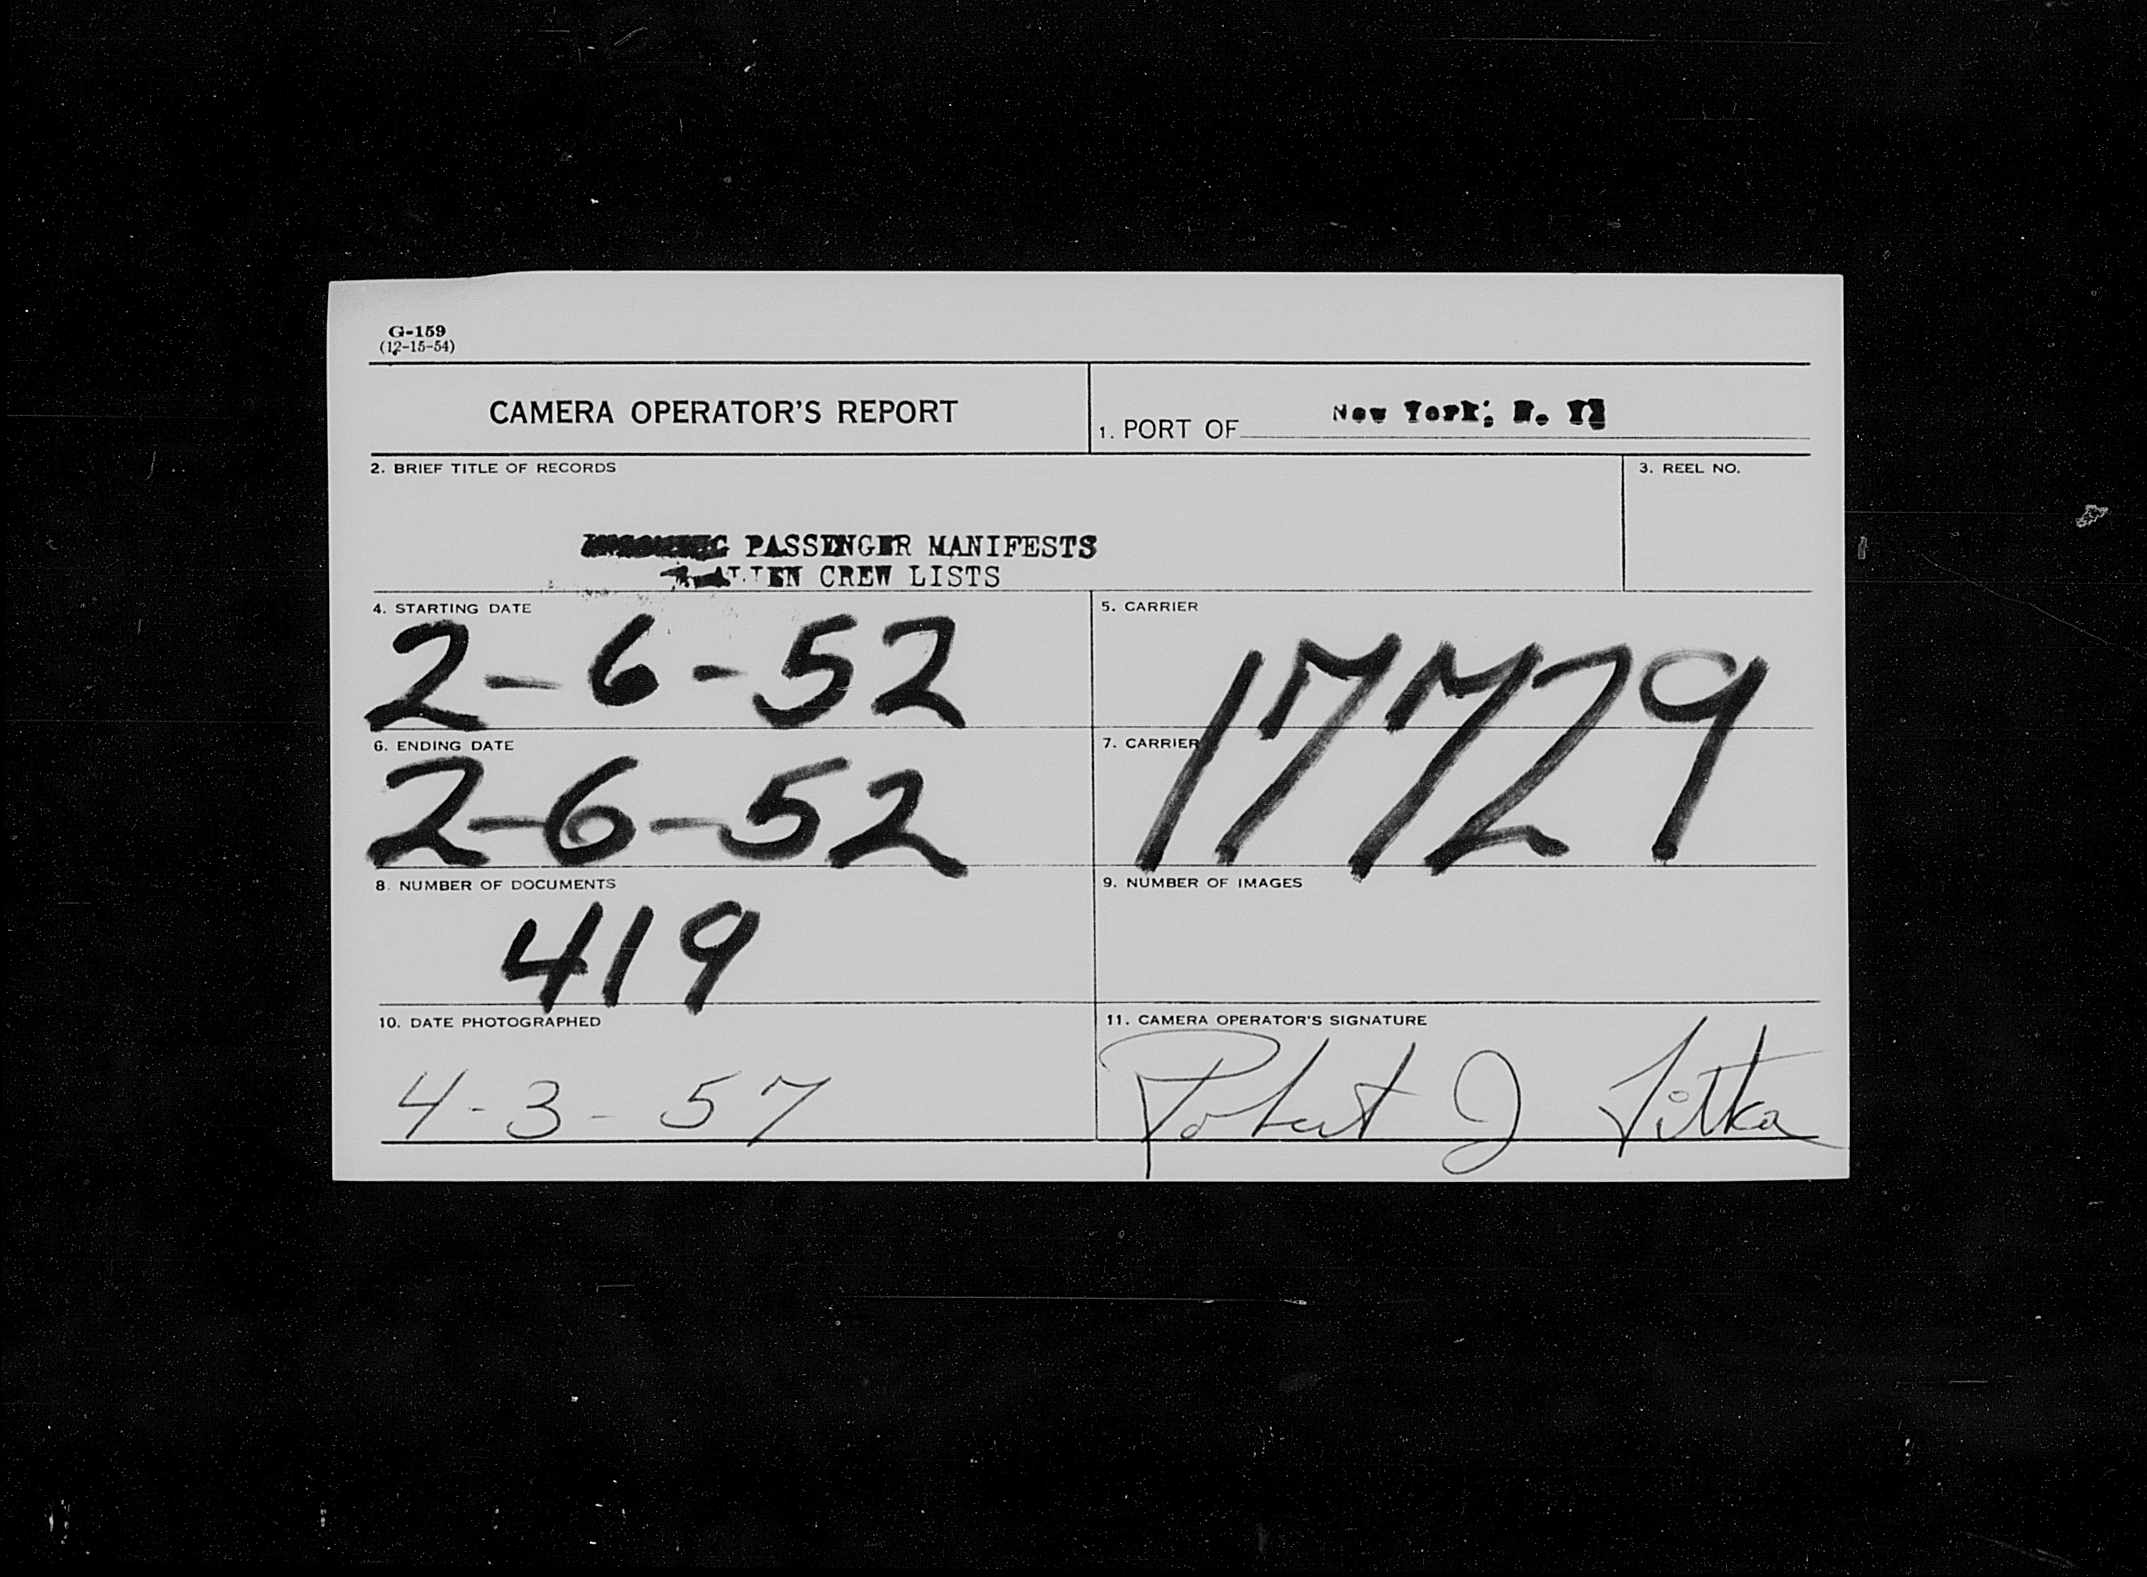 G-159
(12-15-54)
CAMERA OPERATOR'S REPORT
1. PORT OF New York, N. Y.
2. BRIEF TITLE OF RECORDS
3. REEL NO.
PASSENGER MANIFESTS
ALIEN CREW LISTS
4. STARTING DATE
2-6-52
5. CARRIER
17729
6. ENDING DATE
2-6-52
7. CARRIER
8. NUMBER OF DOCUMENTS
419
9. NUMBER OF IMAGES
10. DATE PHOTOGRAPHED
4-3-57
11. CAMERA OPERATOR'S SIGNATURE
Robert J